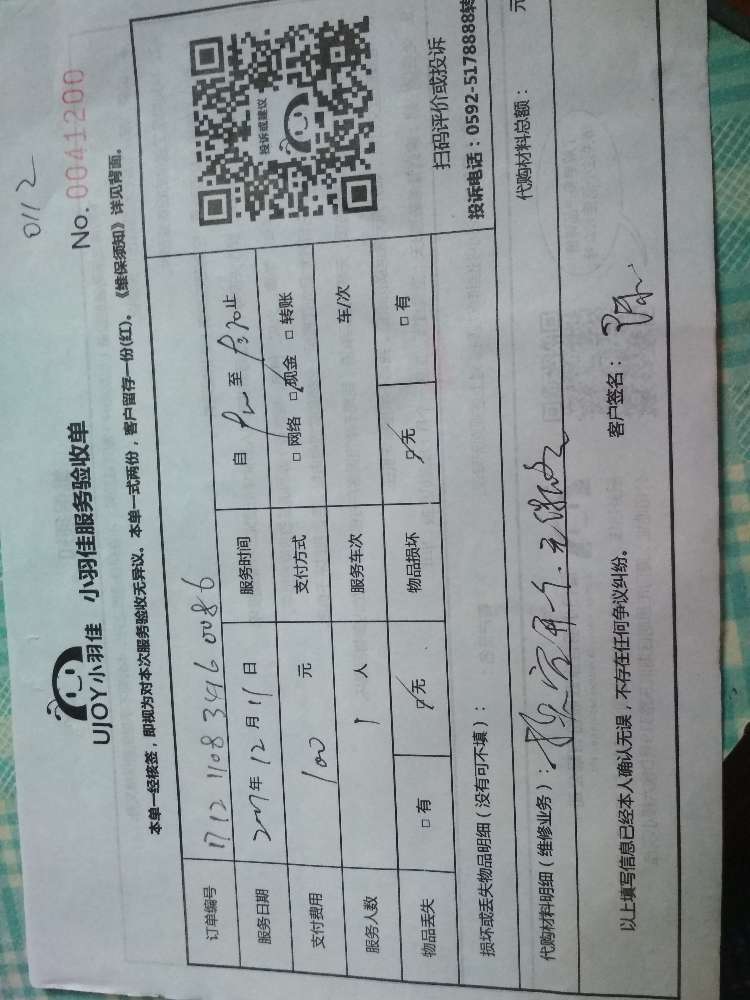 0112
No. 0041200
UJOY小羽佳 小羽佳服务验收单
本单一经核签，即视为对本次服务验收无异议。本单一式两份，客户留存一份(红)。《维保须知》详见背面。
订单编号 17121108394600086
服务日期 2017年12月11日 服务时间 自 至 止
支付费用 100 元 支付方式 □ 网络 ☑ 现金 □ 转账
服务人数 1 人 服务车次 车/次
物品丢失 □ 有 ☑ 无 物品损坏 ☑ 无 □ 有
投诉或建议
扫码评价或投诉
投诉电话：0592-5178888转
损坏或丢失物品明细（没有可不填）：
代购材料明细（维修业务）：
代购材料总额： 元
以上填写信息已经本人确认无误，不存在任何争议纠纷。
客户签名： 陈